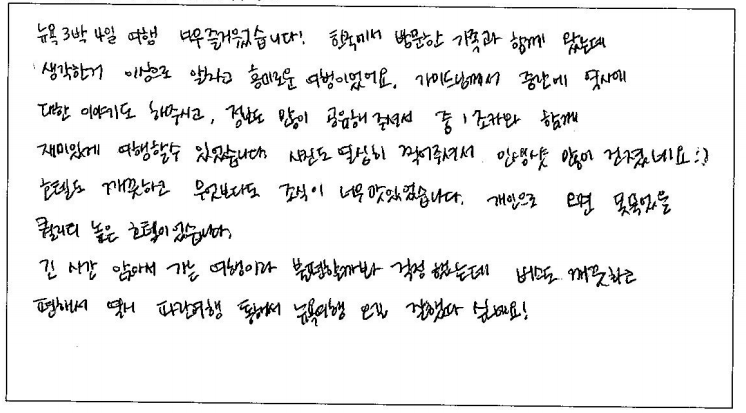 뉴욕 3박 4일 여행 너무 즐거웠습니다! 한국에서 방문한 가족과 함께 왔는데
생각한거 이상으로 알차고 흥미로운 여행이었어요. 가이드님께서 중간에 역사에
대한 이야기도 해주시고, 정보도 많이 공유해 주셔서 중1 조카와 함께
재미있게 여행할수 있었습니다. 사진도 열심히 찍어주셔서 인생샷 많이 건졌네요 :)
호텔도 깨끗하고 무엇보다도 조식이 너무 맛있었습니다. 개인으로 오면 못묵었을
퀄리티 높은 호텔이었습니다.
긴 시간 앉아서 가는 여행이라 불편할까봐 걱정 했는데 버스도 깨끗하고
편해서 역시 파란여행 통해서 뉴욕여행 오길 잘했다 싶네요!